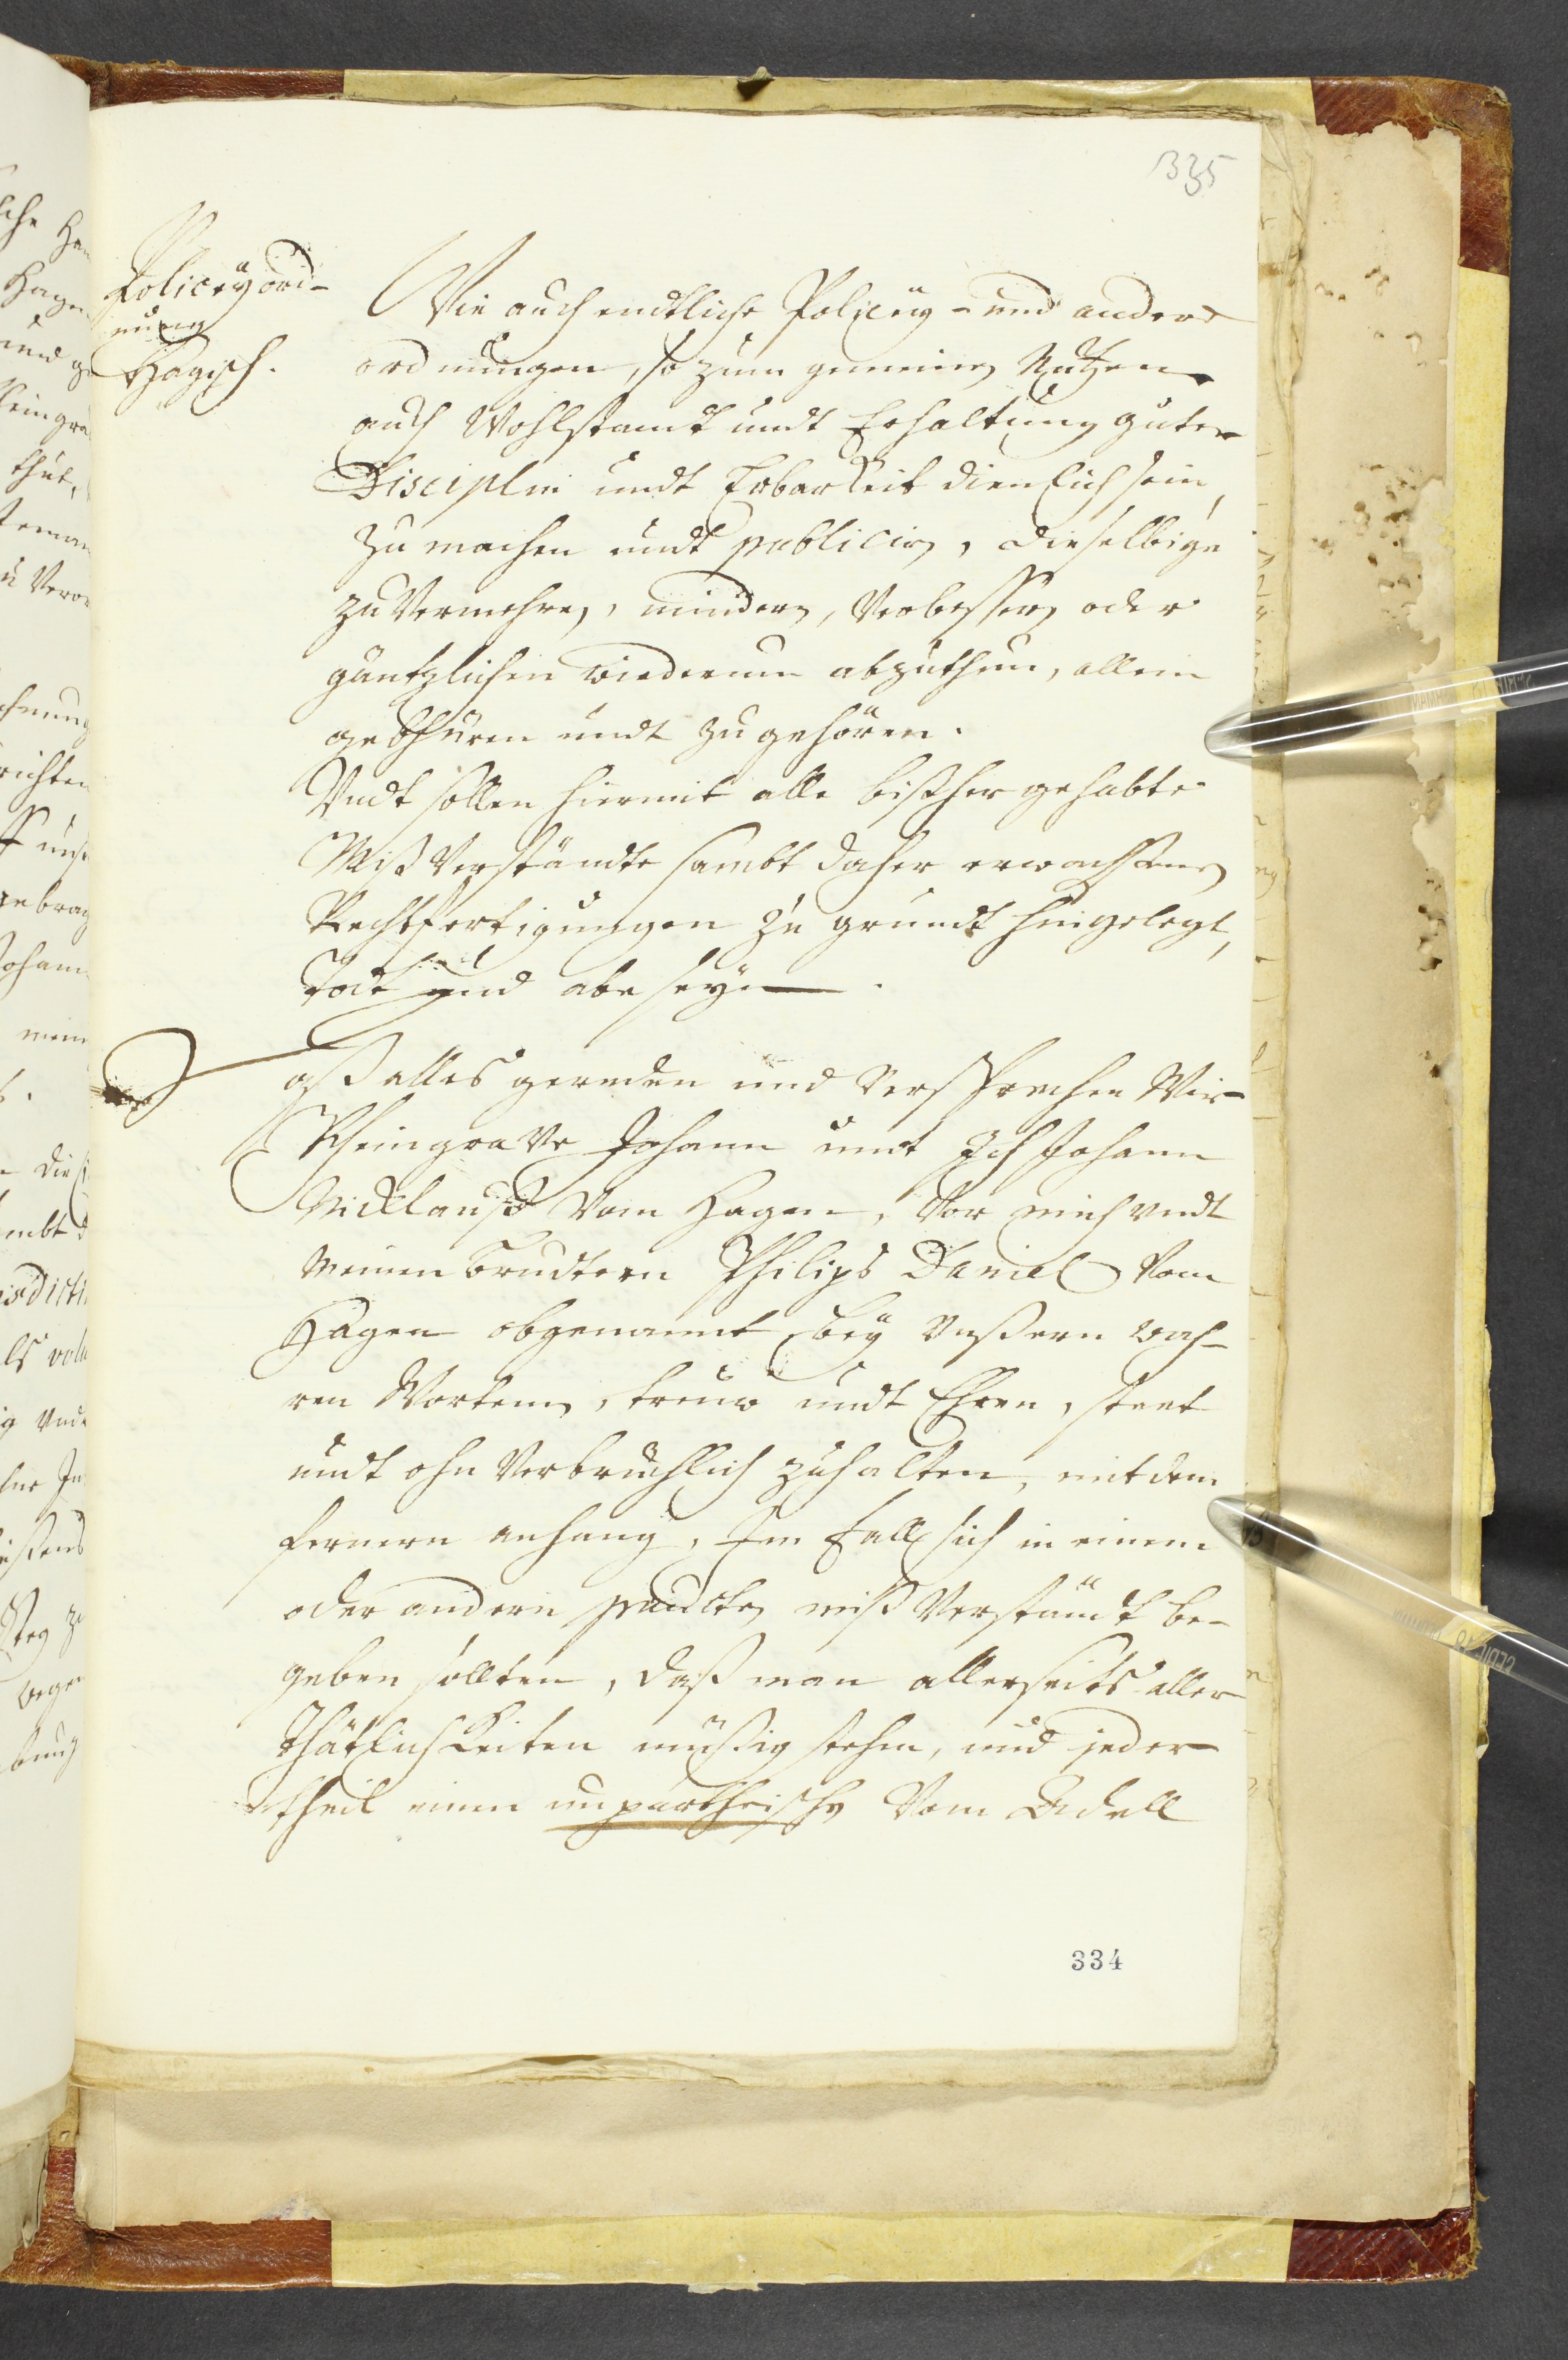 335
Policeÿ ord-
nung
Hagisch.
Wie auch endtliche Policeÿ- und andere
ordnungen, so zum gemeinen Nutzen
auch Wohlstandt undt Erhaltung guter
Disciplin undt Erbarkeit dienlich sein,
zu machen undt publiciren, dieselbige
zu Vermehren, mindern, Verbessern oder
gäntzlichen wiederum abzuthun, allein
gebhüren undt zugehören.
Undt sollen hiermit alle bißher gehabte
Miß Verständte sambt daher erwachsene
Rechtfertigungen zu grundt hingelegt,
todt und abe seyn.
Daß alles gereden und Versprechen Wir
Rheingrave Johann undt Ich Johann
Nicklauß Vom Hagen, Vor mich undt
meinen brudtern Philips Daniel Vom
Hagen obgenannt beÿ Unßern wah-
ren Worten, treuw undt Ehren, steet
undt ohn Verbrüchlich zuhalten, mit dem
fernern anhang, Im fall sich in einem
oder andern puncten miß Verständt be-
geben sollten, daß man allerseits aller
Thätlichkeiten müßig stehen, und jeder
theil einen unpartheischen Vom Adell
334